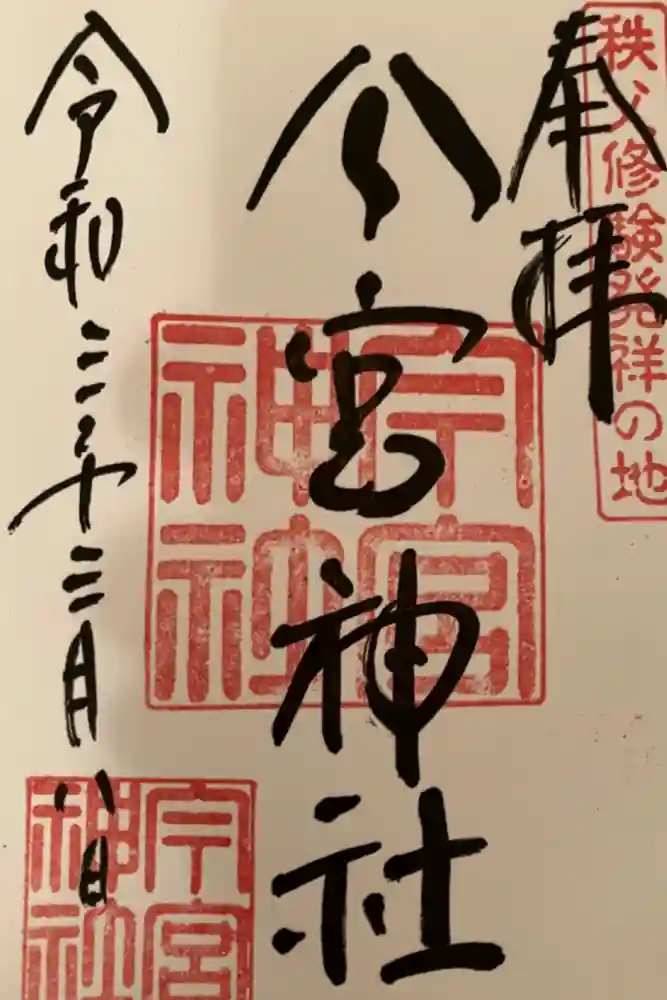 秩父修験発祥の地
奉拝
今宮神社
今宮
神社
令和三年三月八日
今宮
神社